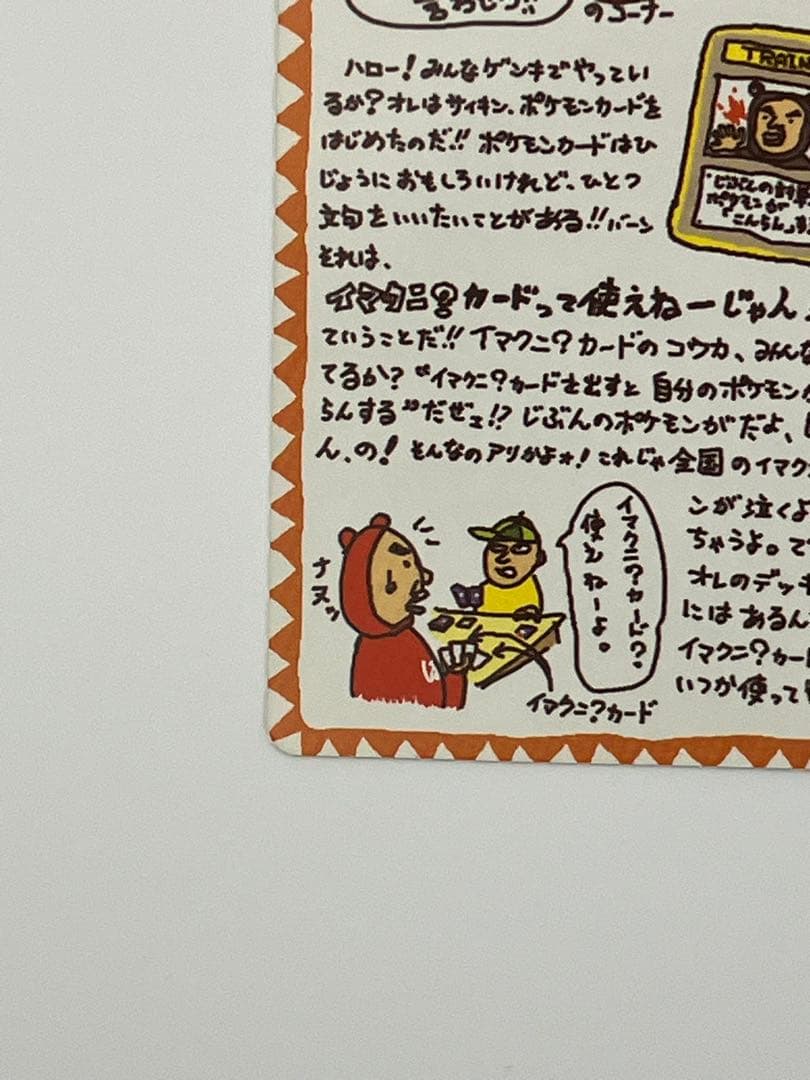 のコーナー
ハロー！みんなゲンキでやってい
るか？オレはサイキン、ポケモンカードを
はじめたのだ!! ポケモンカードはひ
じょうにおもしろいけれど、ひとつ
文句をいいたいことがある!! バーン
それは、
イマクニ？カードって使えねーじゃん
ていうことだ!! イマクニ？カードのコウカ、みんな
てるか？“イマクニ？カードを出すと 自分のポケモンが
らんする”だぜェ!? じぶんのポケモンがだよ、
ん、の！そんなのアリかよォ！これじゃ全国のイマク
ンが泣くよ
ちゃうよ。で
オレのデッキ
にはあるん
イマクニ？カード
いつか使って
TRAIN
じぶんの
ポケモンが
「こんらん」
ナヌッ
イマクニ？カード？
使えねーよ。
イマクニ？カード